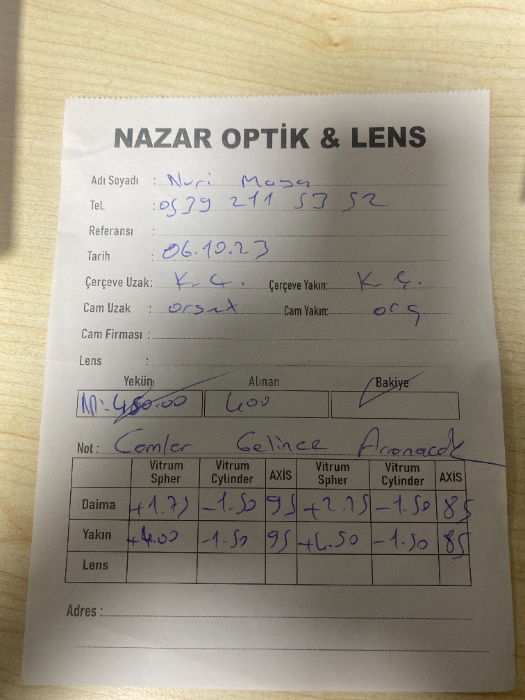 NAZAR OPTİK & LENS
Adı Soyadı : Nuri
Tel. : 0539 211 53 52
Referansı :
Tarih : 06.10.23
Çerçeve Uzak: K.Ç. Çerçeve Yakın: K.Ç.
Cam Uzak : Cam Yakın: org
Cam Firması :
Lens :
Yekün Alınan Bakiye
400
Not : Camler Gelince Aranacak
Vitrum Spher Vitrum Cylinder AXİS Vitrum Spher Vitrum Cylinder AXİS
Daima +1.75 -1.50 95 +2.25 -1.50 85
Yakın +4.00 -1.50 95 +4.50 -1.50 85
Lens
Adres :